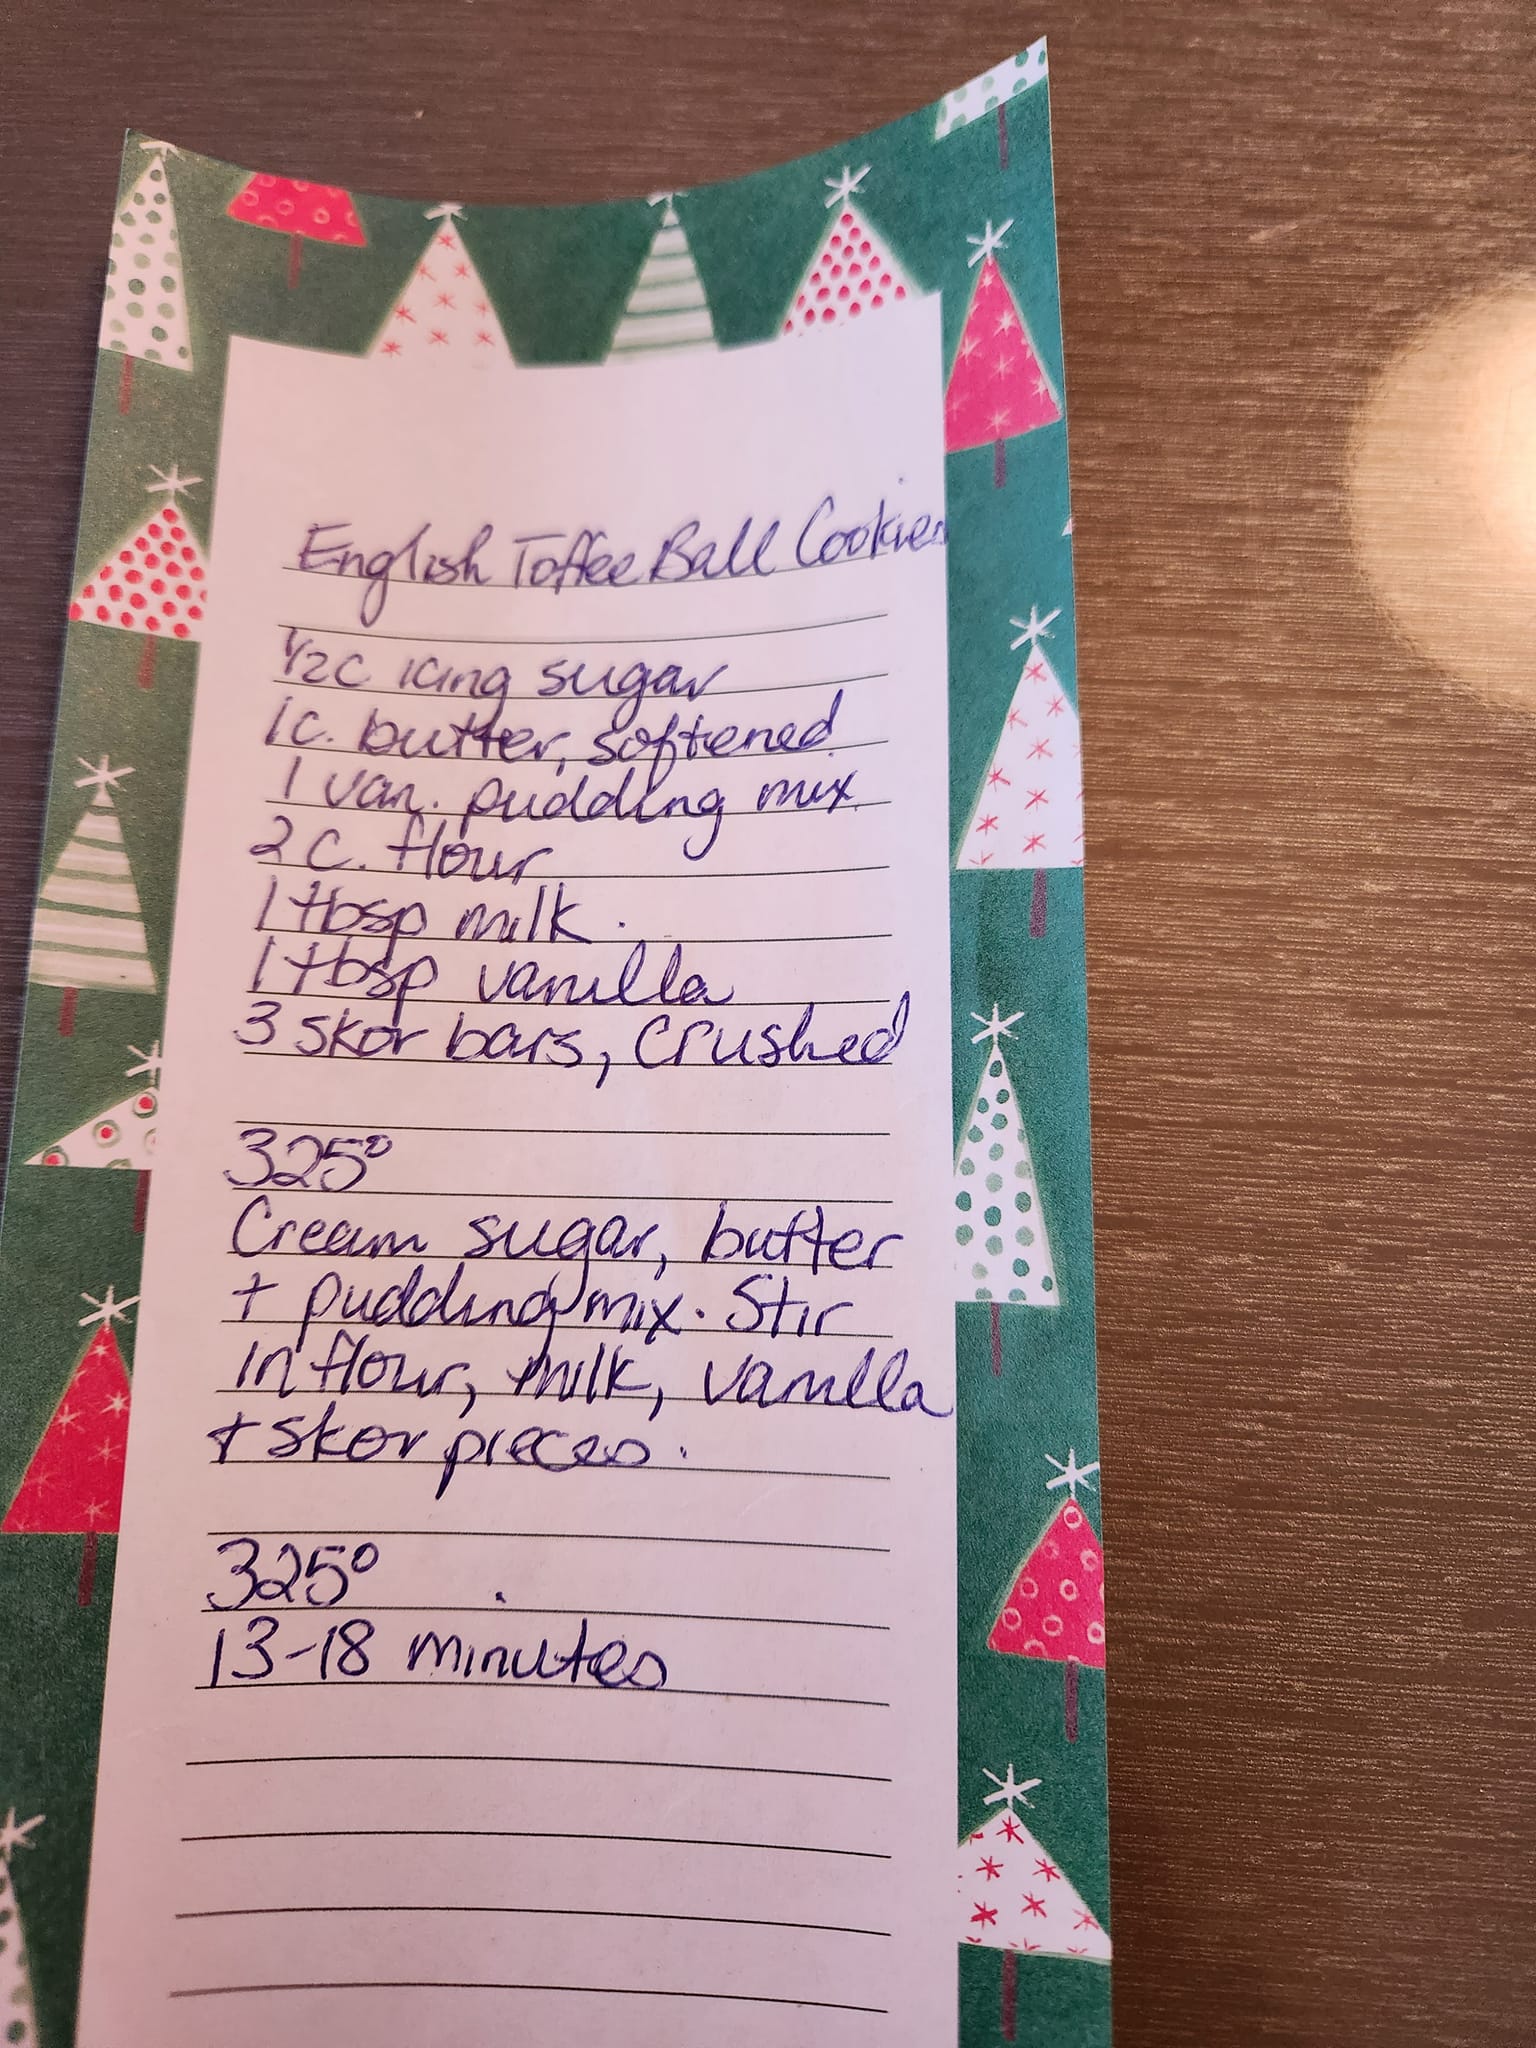 English Toffee Ball Cookies
1/2 c icing sugar
1 c. butter, softened
1 van. pudding mix
2 c. flour
1 tbsp milk.
1 tbsp vanilla
3 skor bars, crushed
325°
Cream sugar, butter
+ pudding mix. Stir
in flour, milk, vanilla
+ skor pieces.
325°
13-18 minutes